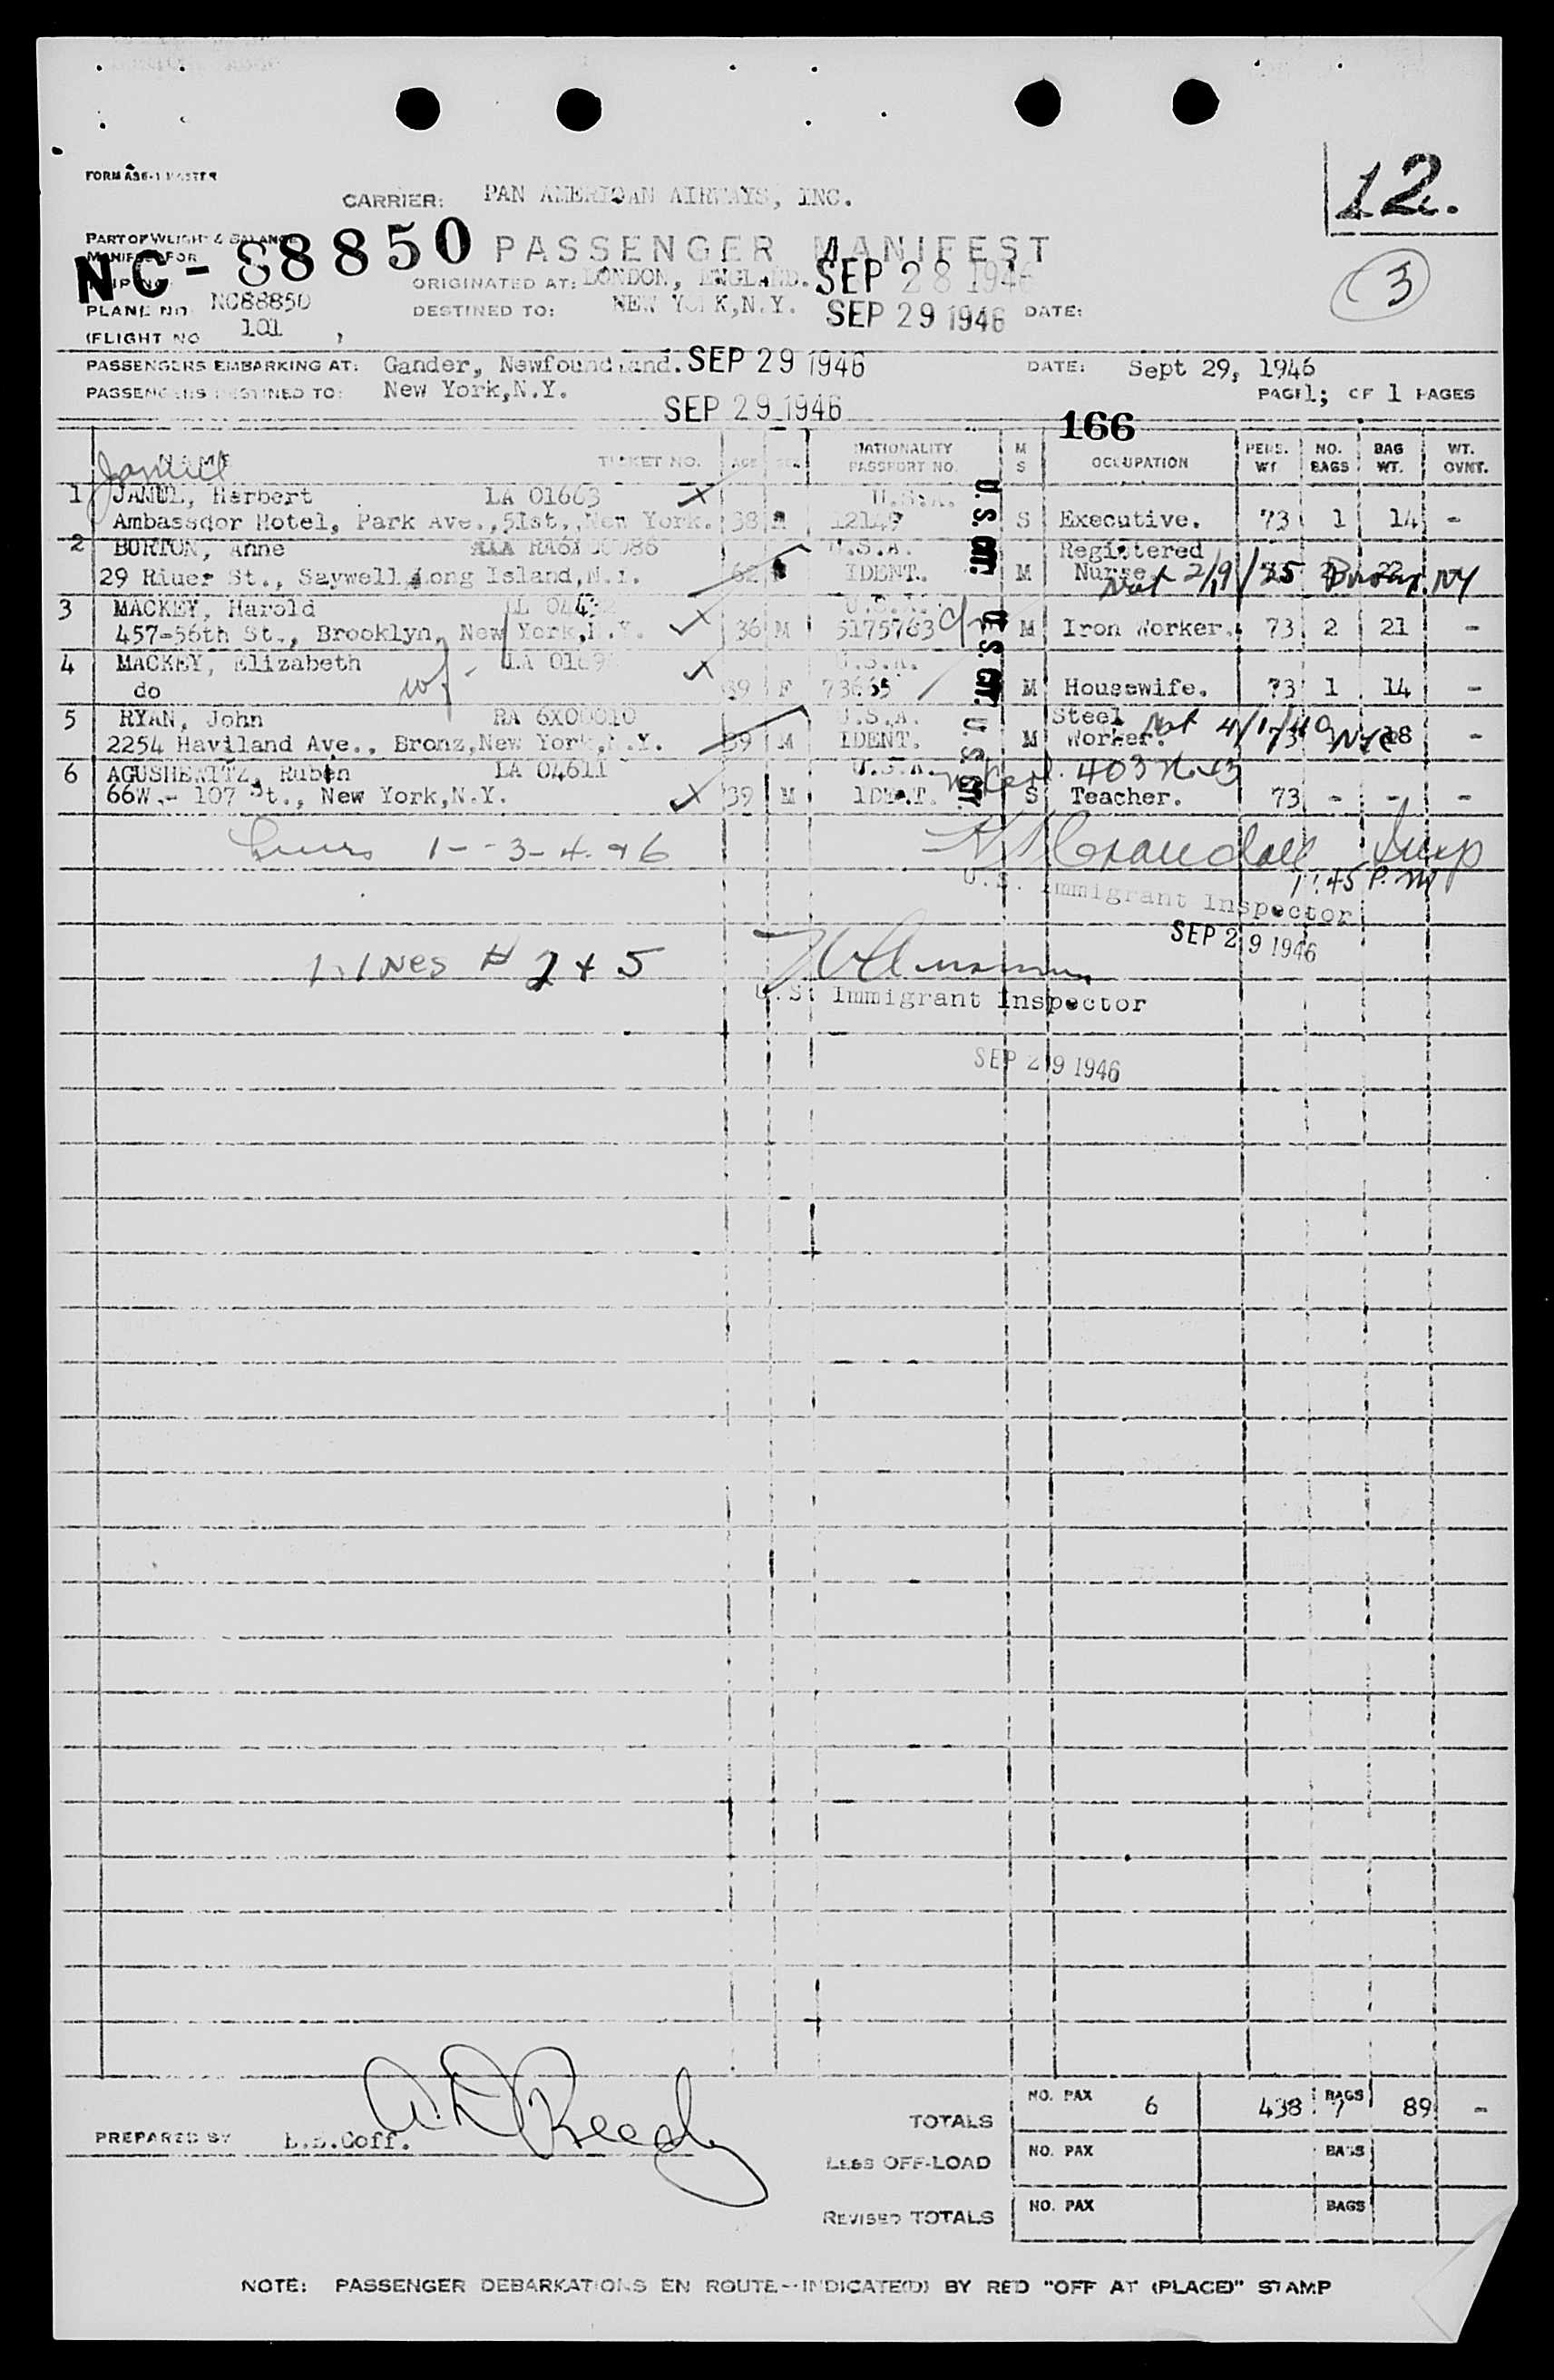 12.
FORM A36-1 MASTER
CARRIER: PAN AMERICAN AIRWAYS, INC.
PART OF WEIGHT & BALANCE
MANIFEST FOR
NC-88850 PASSENGER MANIFEST
3
ORIGINATED AT: LONDON, ENGLAND. SEP 28 1946
PLANE NO NC88850 DESTINED TO: NEW YORK, N.Y. SEP 29 1946 DATE:
(FLIGHT NO 101 )
PASSENGERS EMBARKING AT: Gander, Newfoundland. SEP 29 1946 DATE: Sept 29, 1946
PASSENGERS DESTINED TO: New York,N.Y. SEP 29 1946 PAGE 1; OF 1 PAGES
166
NAME TICKET NO. AGE SEX NATIONALITY PASSPORT NO. M S OCCUPATION PERS. WT NO. BAGS BAG WT. WT. OVNT.
1 JAMUL, Herbert LA 01663 U.S.A. U.S. CIT.
Ambassdor Hotel, Park Ave.,51st.,New York. 38 12149 S Executive. 73 1 14 -
2 BURTON, Anne U.S.A. Registered
29 River St., Saywell,Long Island,N.Y. 62 IDENT. M Nurse. Nat 2/9/25 22 NY
3 MACKEY, Harold U.S.A.
457-56th St., Brooklyn, New York,N.Y. 36 M 5175763 U.S. CIT. M Iron Worker. 73 2 21 -
4 MACKEY, Elizabeth U.S.A.
do 39 F 73665 M Housewife. 73 1 14 -
5 RYAN, John RA 6X00010 U.S.A. Steel Nat 4/1/40 NYC
2254 Haviland Ave., Bronz,New York,N.Y. 39 M IDENT. U.S. CIT. M Worker. 73 18 -
6 AGUSHEWITZ, Ruben LA 04611 U.S.A.
66W.- 107 St., New York,N.Y. 39 M IDENT. S Teacher. 73 - - -
Lines 1--3-4-&6 Crandall Insp
U.S. Immigrant Inspector 11:45 P.M
SEP 29 1946
Lines # 2 & 5
U.S. Immigrant Inspector
SEP 29 1946
TOTALS NO. PAX 6 438 BAGS 7 89 -
PREPARED BY Goff. A.D. Reedy
LESS OFF-LOAD NO. PAX BAGS
REVISED TOTALS NO. PAX BAGS
NOTE: PASSENGER DEBARKATIONS EN ROUTE--INDICATE(D) BY RED "OFF AT (PLACE)" STAMP